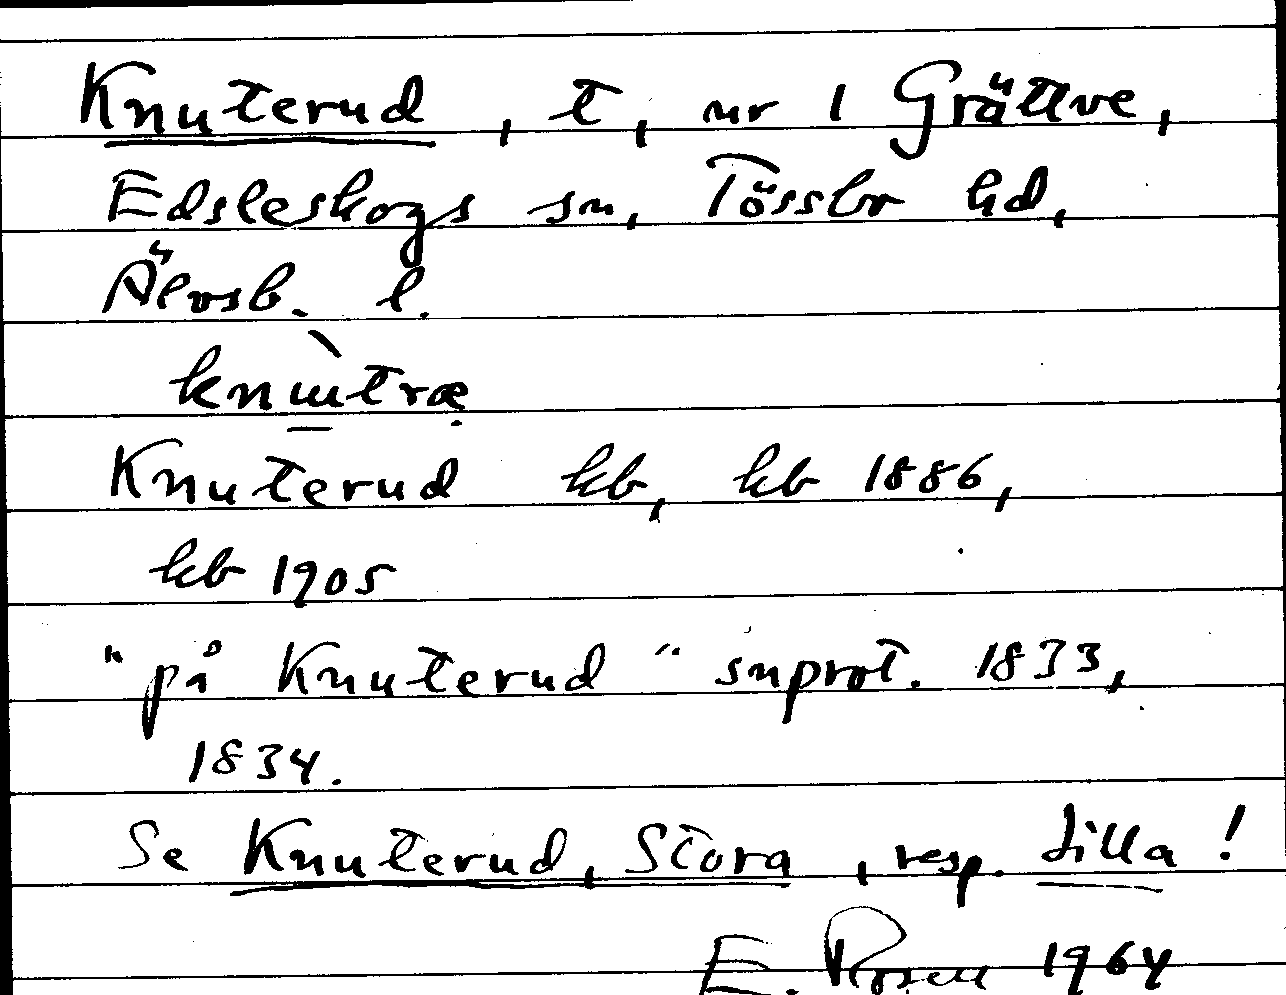 Knuterud, t, nr 1 Grättve,
Edsleskogs sn, Tössbr hd,
Älvsb. l.
Knuterud kb, kb 1886,
kb 1905
"på Knuterud" snprot. 1833,
1834.
Se Knuterud, Stora, resp. Lilla!
E. Rosen 1964